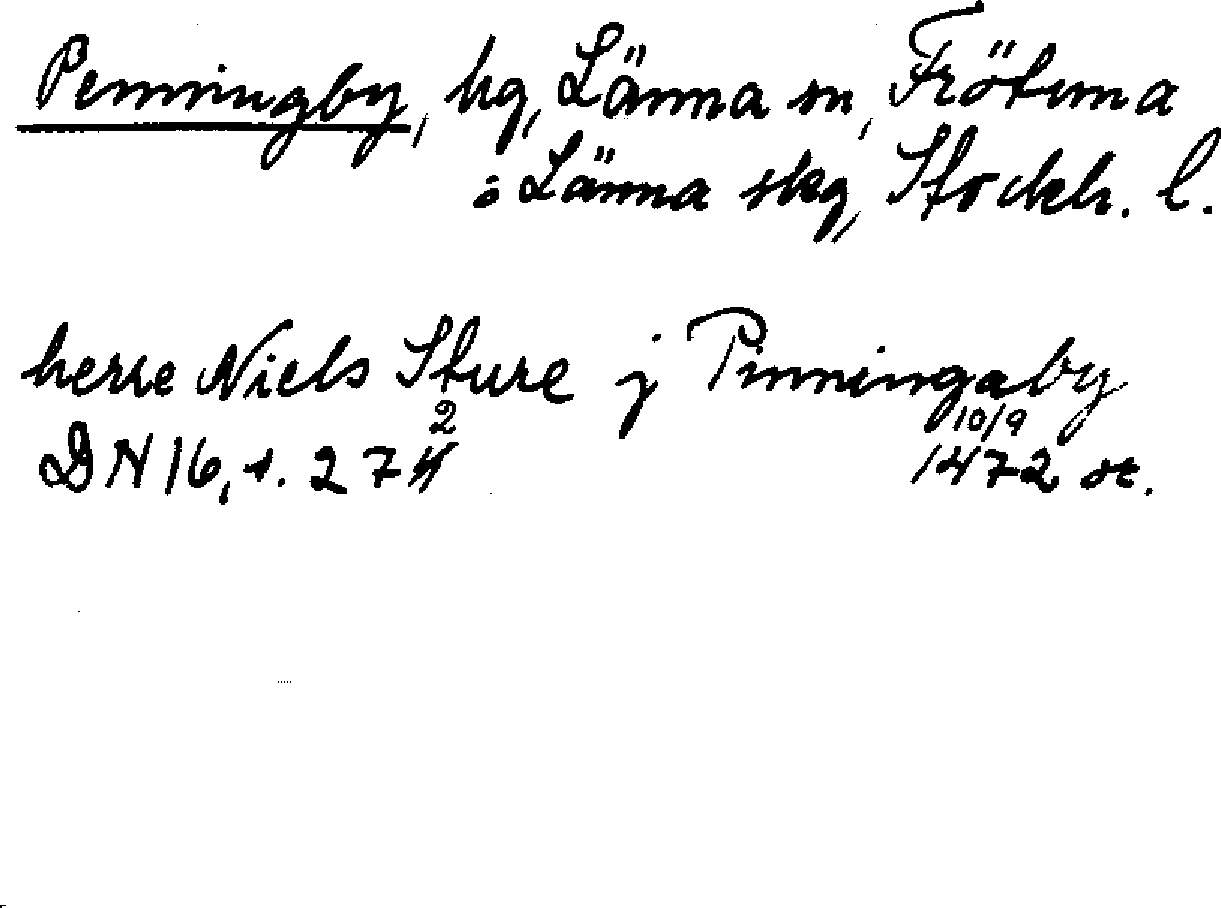 Penningby, hg, Länna sn, Frötuna
o Länna skg, Stockh. l.
herre Niels Sture j Pinningaby
10/9
DN 16, s. 272 1472 st.